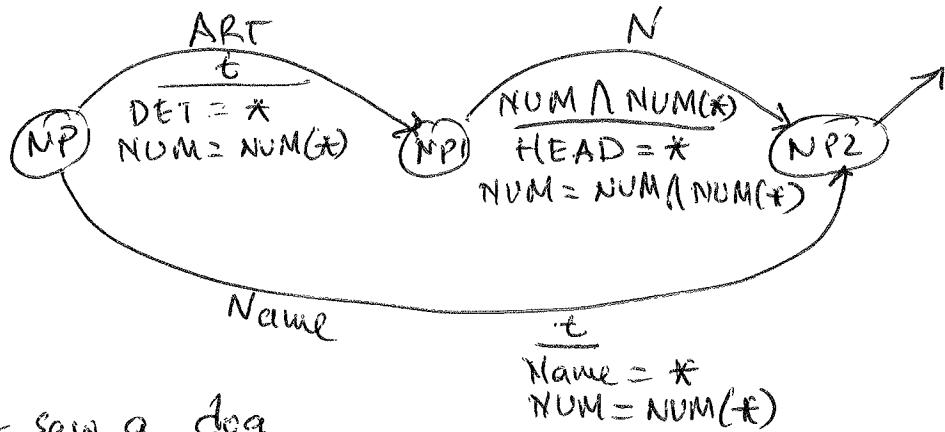 ART
t
DET = *
NUM = NUM(*)
N
NUM ∧ NUM(*)
HEAD = *
NUM = NUM ∧ NUM(*)
NP
NP1
NP2
Name
t
Name = *
NUM = NUM(*)
saw a dog